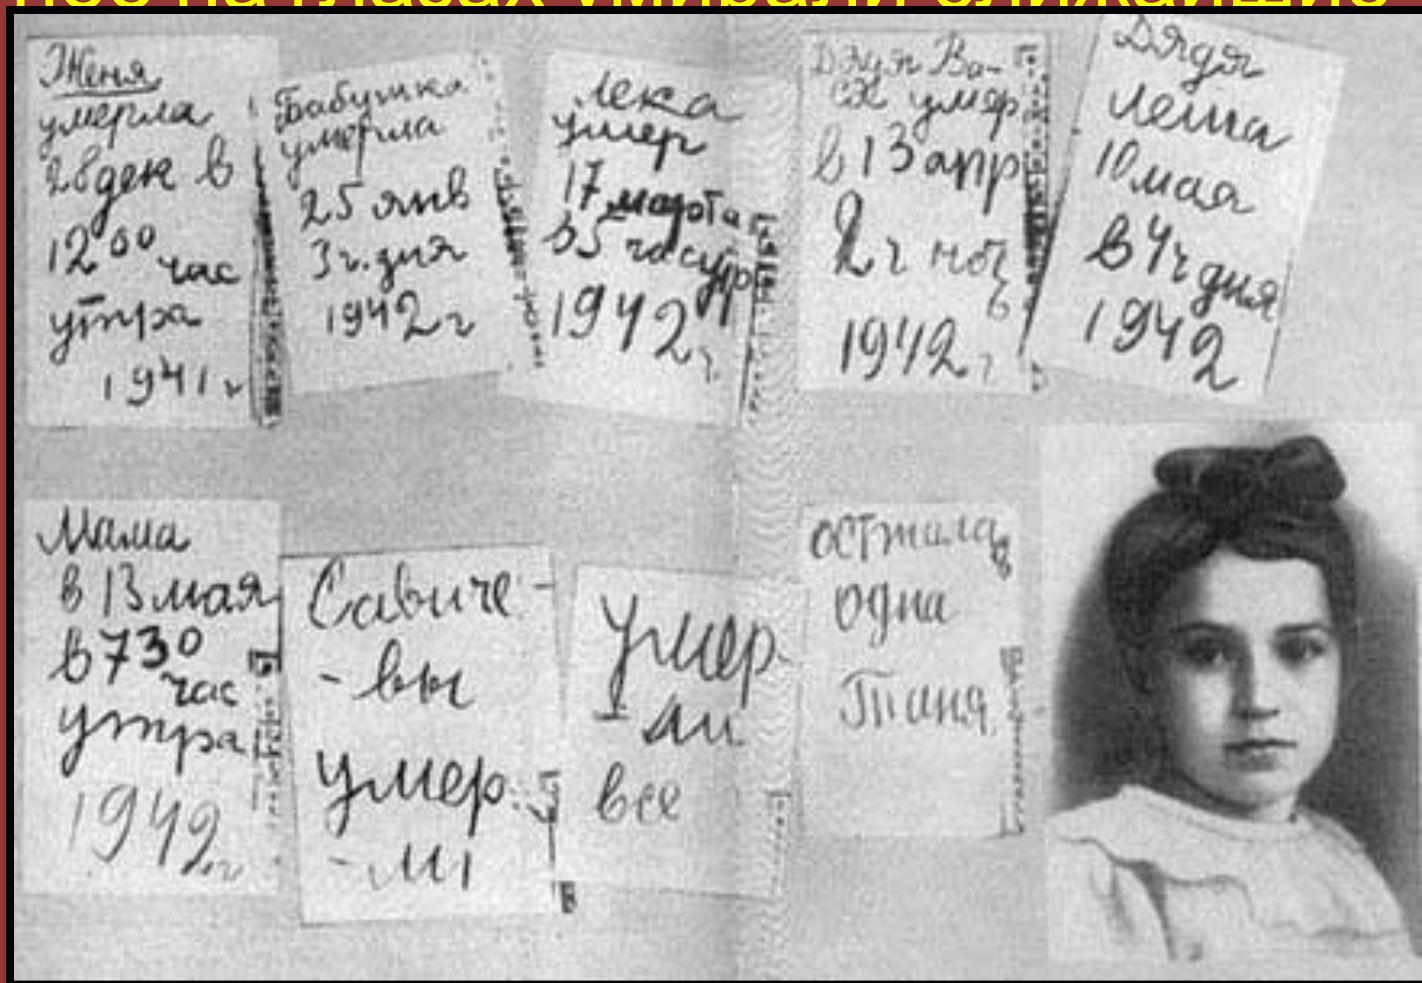 нее на глазах умирали ближайшие
Женя
умерла
28 дек в
12 00 час
утра
1941 г
Бабушка
умерла
25 янв
3 ч. дня
1942 г
Лека
умер
17 марта
в 5 час утр
1942 г
Дядя Ва-
ся умер
в 13 апр
2 ч ноч
ь
1942 г
Дядя
Леша
10 мая
в 4 ч дня
1942
Мама
в 13 мая
в 7 30
час
утра
1942 г
Савиче-
-вы
умер
-ли
умер-
ли
все
осталась
одна
Таня